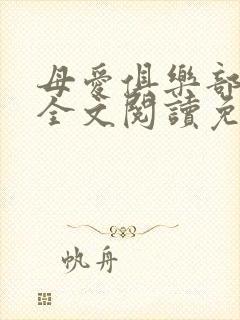 母愛俱樂部
全文閱讀免
帆舟